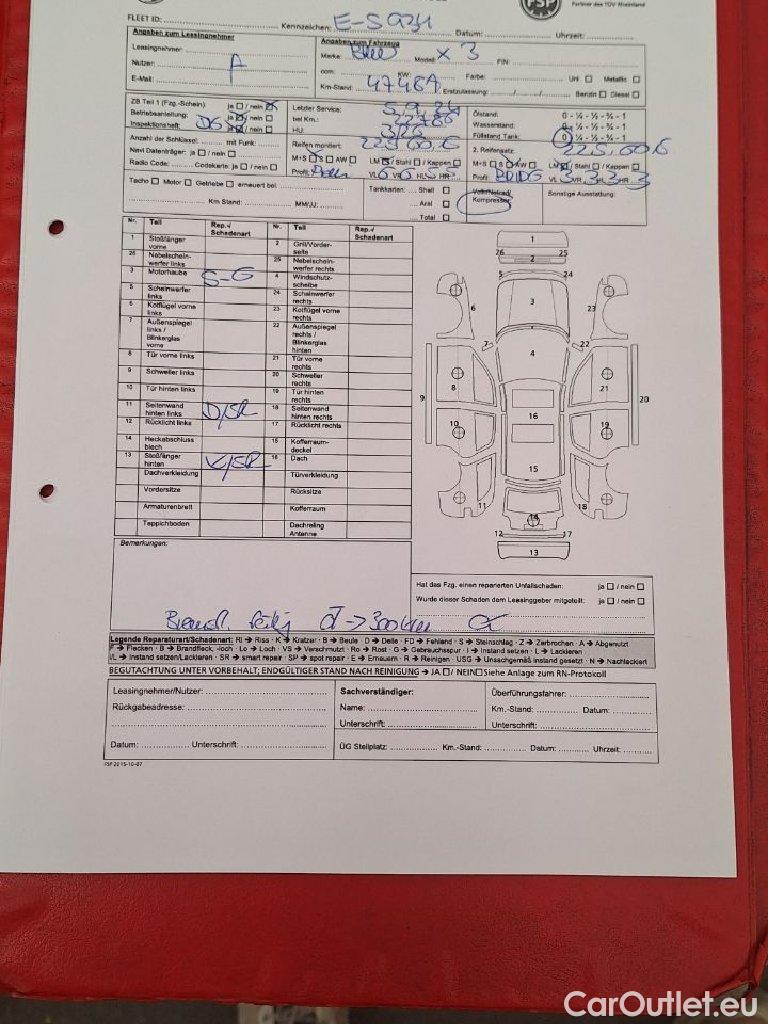 FSP
Partner des TÜV Rheinland
FLEET ID: Kennzeichen: E-S Datum: Uhrzeit:
Angaben zum Leasingnehmer
Leasingnehmer:
Nutzer: A
E-Mail:
Angaben zum Fahrzeug
Marke: Modell: X3 FIN:
ccm: KW: Farbe: Uni Metallic
Km-Stand: Erstzulassung: Benzin Diesel
ZB Teil 1 (Fzg.-Schein): ja / nein
Betriebsanleitung: ja / nein
Inspektionsheft: DS ja / nein
Anzahl der Schlüssel: mit Funk:
Navi Datenträger: ja / nein
Radio Code: Codekarte: ja / nein
Letzter Service: 5.9.24
bei Km.:
HU:
Reifen montiert: 225 60
M+S S AW LM / Stahl / Kappen
Profil: VL VR HL HR
Ölstand: 0 - ¼ - ½ - ¾ - 1
Wasserstand: 0 - ¼ - ½ - ¾ - 1
Füllstand Tank: 0 - ¼ - ½ - ¾ - 1
2. Reifensatz: 225.60
M+S S AW LM / Stahl / Kappen
Profil: BRIDG VL 3 VR 3 HL 3 HR 3
Tacho Motor Getriebe erneuert bei
Km Stand: (MM/JJ)
Tankkarten: Shell
Aral
Total
Kompressor
Sonstige Ausstattung:
Nr. Teil Rep./ Schadenart Nr. Teil Rep./ Schadenart
1 Stoßfänger vorne 2 Grill/Vorderseite
26 Nebelscheinwerfer links 25 Nebelscheinwerfer rechts
3 Motorhaube S-G 4 Windschutzscheibe
5 Scheinwerfer links 24 Scheinwerfer rechts
6 Kotflügel vorne links 23 Kotflügel vorne rechts
7 Außenspiegel links / Blinkerglas vorne 22 Außenspiegel rechts / Blinkerglas hinten
8 Tür vorne links 21 Tür vorne rechts
9 Schweller links 20 Schweller rechts
10 Tür hinten links 19 Tür hinten rechts
11 Seitenwand hinten links D/SR 18 Seitenwand hinten rechts
12 Rücklicht links 17 Rücklicht rechts
14 Heckabschlussblech 15 Kofferraumdeckel
13 Stoßfänger hinten K/SR 16 Dach
Dachverkleidung Türverkleidung
Vordersitze Rücksitze
Armaturenbrett Kofferraum
Teppichboden Dachreling Antenne
1
26 25
2
5 24
3
6 23
7 22
4
8 21
9 20
10 19
16
15
11 18
14
12 17
13
Bemerkungen:
Hat das Fzg. einen reparierten Unfallschaden: ja / nein
Wurde dieser Schaden dem Leasinggeber mitgeteilt: ja / nein
Legende Reparaturart/Schadenart: RI → Riss · K → Kratzer · B → Beule · D → Delle · FD → Fehlend · S → Steinschlag · Z → Zerbrochen · A → Abgenutzt
F → Flecken · B → Brandfleck, -loch · Lo → Loch · VS → Verschmutzt · Ro → Rost · G → Gebrauchsspur · I → Instand setzen · L → Lackieren
I/L → Instand setzen/Lackieren · SR → smart repair · SP → spot repair · E → Erneuern · R → Reinigen · USG → Unsachgemäß instand gesetzt · N → Nachlackiert
BEGUTACHTUNG UNTER VORBEHALT; ENDGÜLTIGER STAND NACH REINIGUNG → JA / NEIN Siehe Anlage zum RN-Protokoll
Leasingnehmer/Nutzer:
Rückgabeadresse:
Datum: Unterschrift:
Sachverständiger:
Name:
Unterschrift:
Überführungsfahrer:
Km.-Stand: Datum:
Unterschrift:
ÜG Stellplatz: Km.-Stand: Datum: Uhrzeit:
FSP 22 15-10-07
CarOutlet.eu